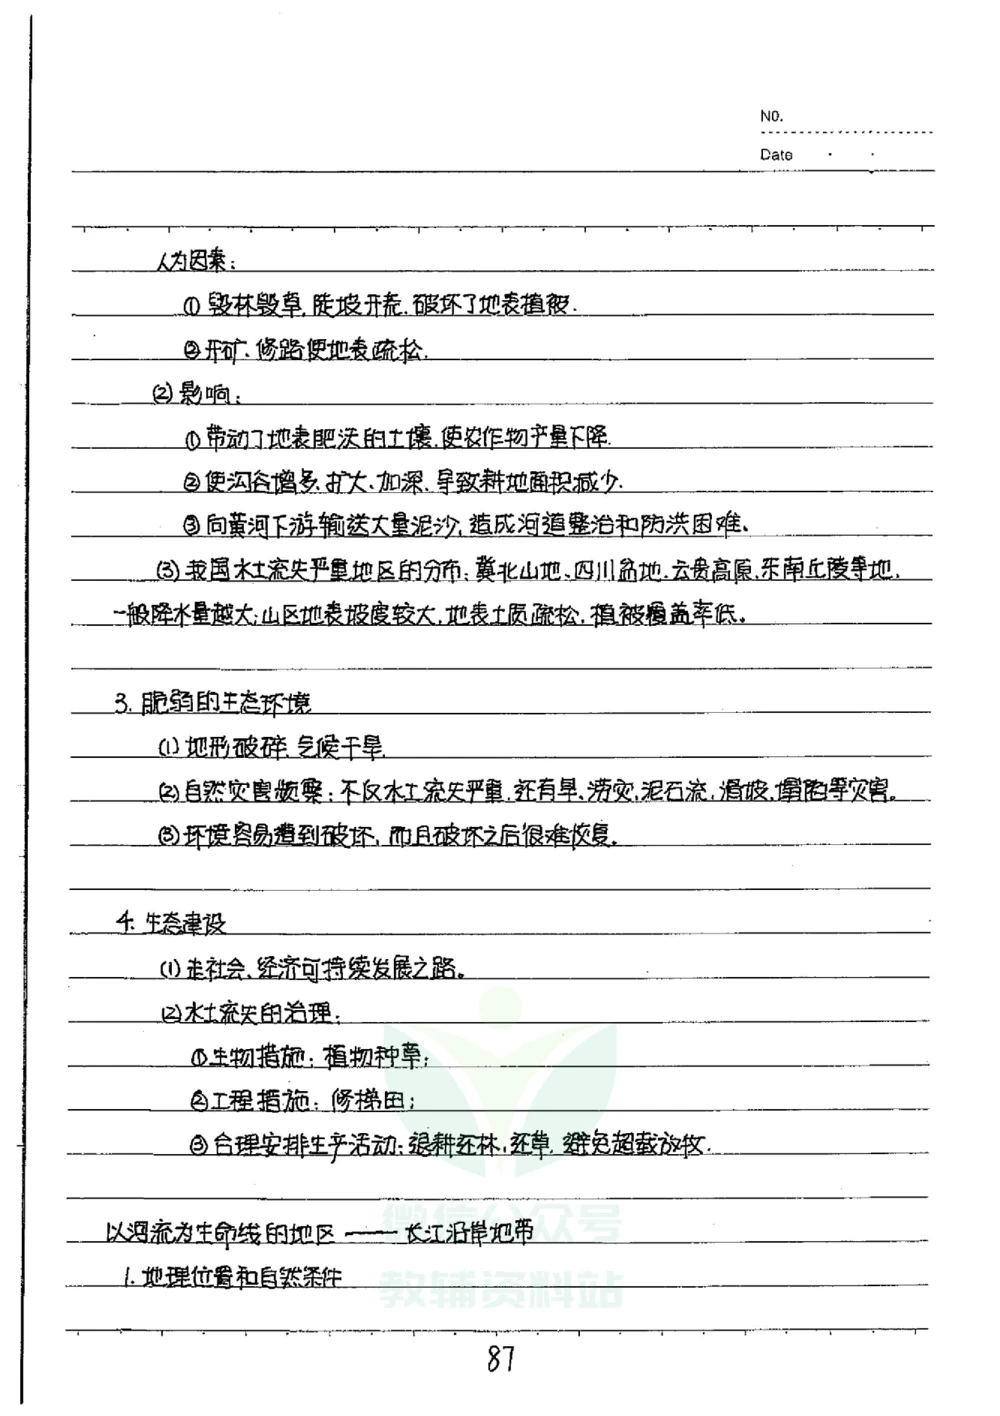 NO.
Date
人为因素：
① 毁林毁草、陡坡开荒、破坏了地表植被.
②开矿、修路使地表疏松.
(2) 影响：
①带动了地表肥沃的土壤,使农作物产量下降.
②使沟谷增多、扩大、加深、导致耕地面积减少.
③向黄河下游输送大量泥沙,造成河道整治和防洪困难。
(3) 我国水土流失严重地区的分布：冀北山地、四川盆地、云贵高原、东南丘陵等地,
一般降水量越大;山区地表坡度较大,地表土质疏松,植被覆盖率低。
3. 脆弱的生态环境
(1) 地形破碎、气候干旱.
(2)自然灾害频繁：不仅水土流失严重,还有旱、涝灾,泥石流、滑坡、塌陷等灾害。
(3)环境容易遭到破坏,而且破坏之后很难恢复。
4. 生态建设
(1) 走社会、经济可持续发展之路。
(2)水土流失的治理：
①生物措施：植物种草;
②工程措施：修梯田;
③合理安排生产活动：退耕还林、还草,避免超载放牧.
以河流为生命线的地区 —— 长江沿岸地带
1. 地理位置和自然条件
微信公众号
教辅资料站
87